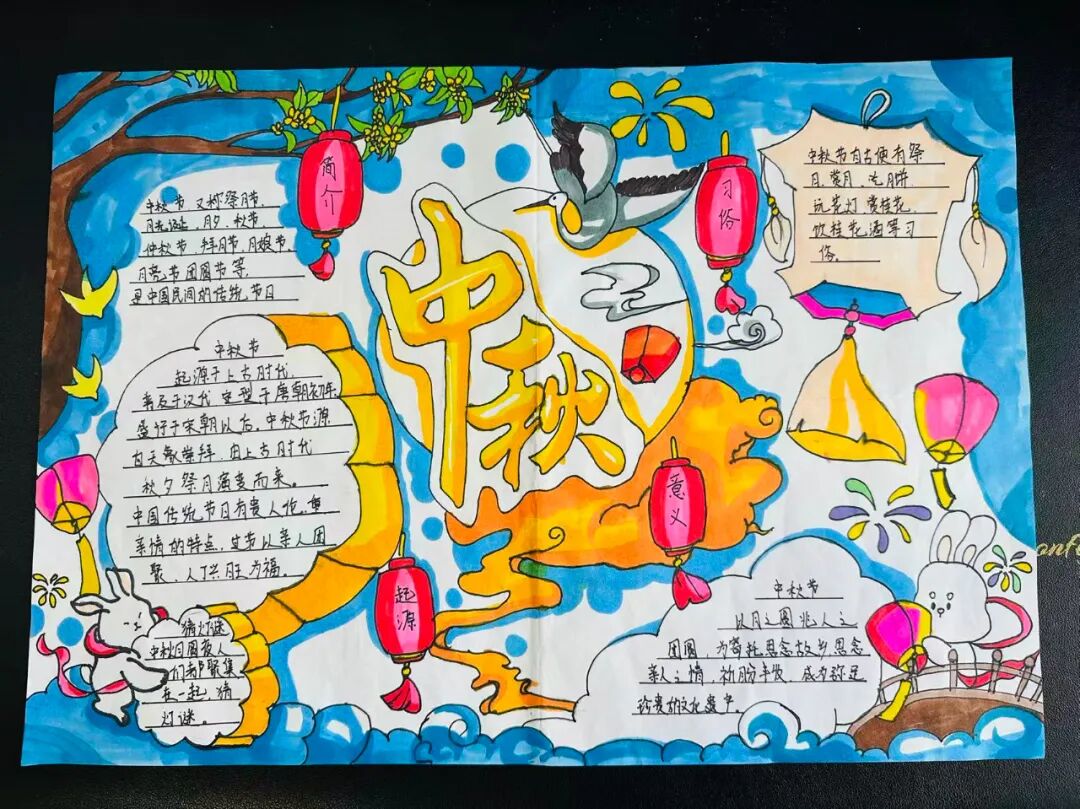 简介
中秋节，又称祭月节、
月光诞、月夕、秋节、
仲秋节、拜月节、月娘节、
月亮节、团圆节等，
是中国民间的传统节日
中秋
习俗
中秋节自古便有祭
月、赏月、吃月饼、
玩花灯、赏桂花、
饮桂花酒等习
俗。
中秋节
起源于上古时代，
普及于汉代，定型于唐朝初年，
盛行于宋朝以后。中秋节源
自天象崇拜，由上古时代
秋夕祭月演变而来。
中国传统节日有贵人伦、重
亲情的特点，过节以亲人团
聚、人丁兴旺为福。
起源
意义
猜灯谜
中秋月圆夜人
们都聚集
在一起，猜
灯谜。
中秋节
以月之圆兆人之
团圆，为寄托思念故乡，思念
亲人之情，祈盼丰收、成为弥足
珍贵的文化遗产
onf